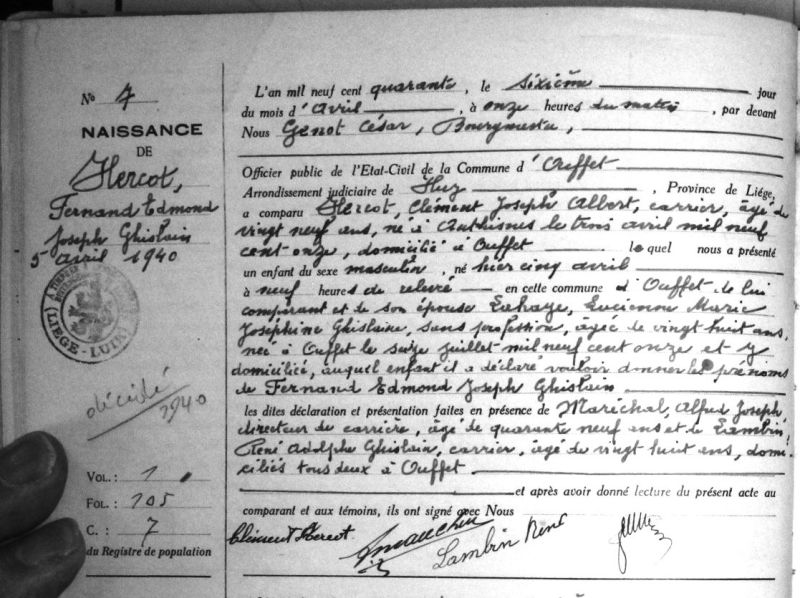 No 7
NAISSANCE
DE
Hercot,
Fernand Edmond
Joseph Ghislain
5 avril 1940
LIÈGE - LUIK
décédé
1940
VOL. : 1
FOL. : 105
C. : 7
du Registre de population
L'an mil neuf cent quarante, le sixième jour
du mois d'Avril, à onze heures du matin, par devant
Nous Genot César, Bourgmestre,
Officier public de l'Etat-Civil de la Commune d'Ouffet
Arrondissement judiciaire de Huy, Province de Liége,
a comparu Hercot, Clément Joseph Albert, carrier, âgé de
vingt neuf ans, né à Anthisnes le trois avril mil neuf
cent onze, domicilié à Ouffet lequel nous a présenté
un enfant du sexe masculin, né hier cinq avril
à neuf heures de relevé en cette commune d'Ouffet de lui
comparant et de son épouse Lahaye, Lucienne Marie
Joséphine Ghislaine, sans profession, âgée de vingt huit ans,
née à Ouffet le seize juillet mil neuf cent onze et y
domiciliée, auquel enfant il a déclaré vouloir donner les prénoms
de Fernand Edmond Joseph Ghislain
les dites déclaration et présentation faites en présence de Maréchal, Alfred Joseph
directeur de carrière, âgé de quarante neuf ans et de Lambin,
René Adolphe Ghislain, carrier, âgé de vingt huit ans, domi
ciliés tous deux à Ouffet.
et après avoir donné lecture du présent acte au
comparant et aux témoins, ils ont signé avec Nous
Clément Hercot Lambin René